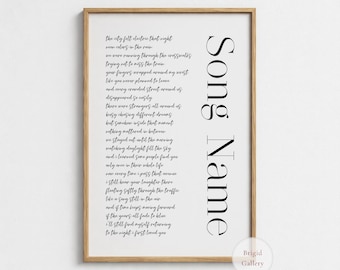 the city felt electric that night
neon colors in the rain
we were running through the crosswalks
trying not to miss the train
your fingers wrapped around my wrist
like you never planned to leave
and every crowded street around us
disappeared so easily
there were strangers all around us
busy chasing different dreams
but somehow inside that moment
nothing mattered in between
we stayed out until the morning
watching daylight fill the sky
and i learned some people find you
only once in their whole life
can every time i pass that corner
i still hear your laughter there
floating softly through the traffic
like a song still in the air
and if time keeps moving forward
if the years all fade to blue
i'll still find myself returning
to the night i first loved you
Song Name
Brigid
Gallery